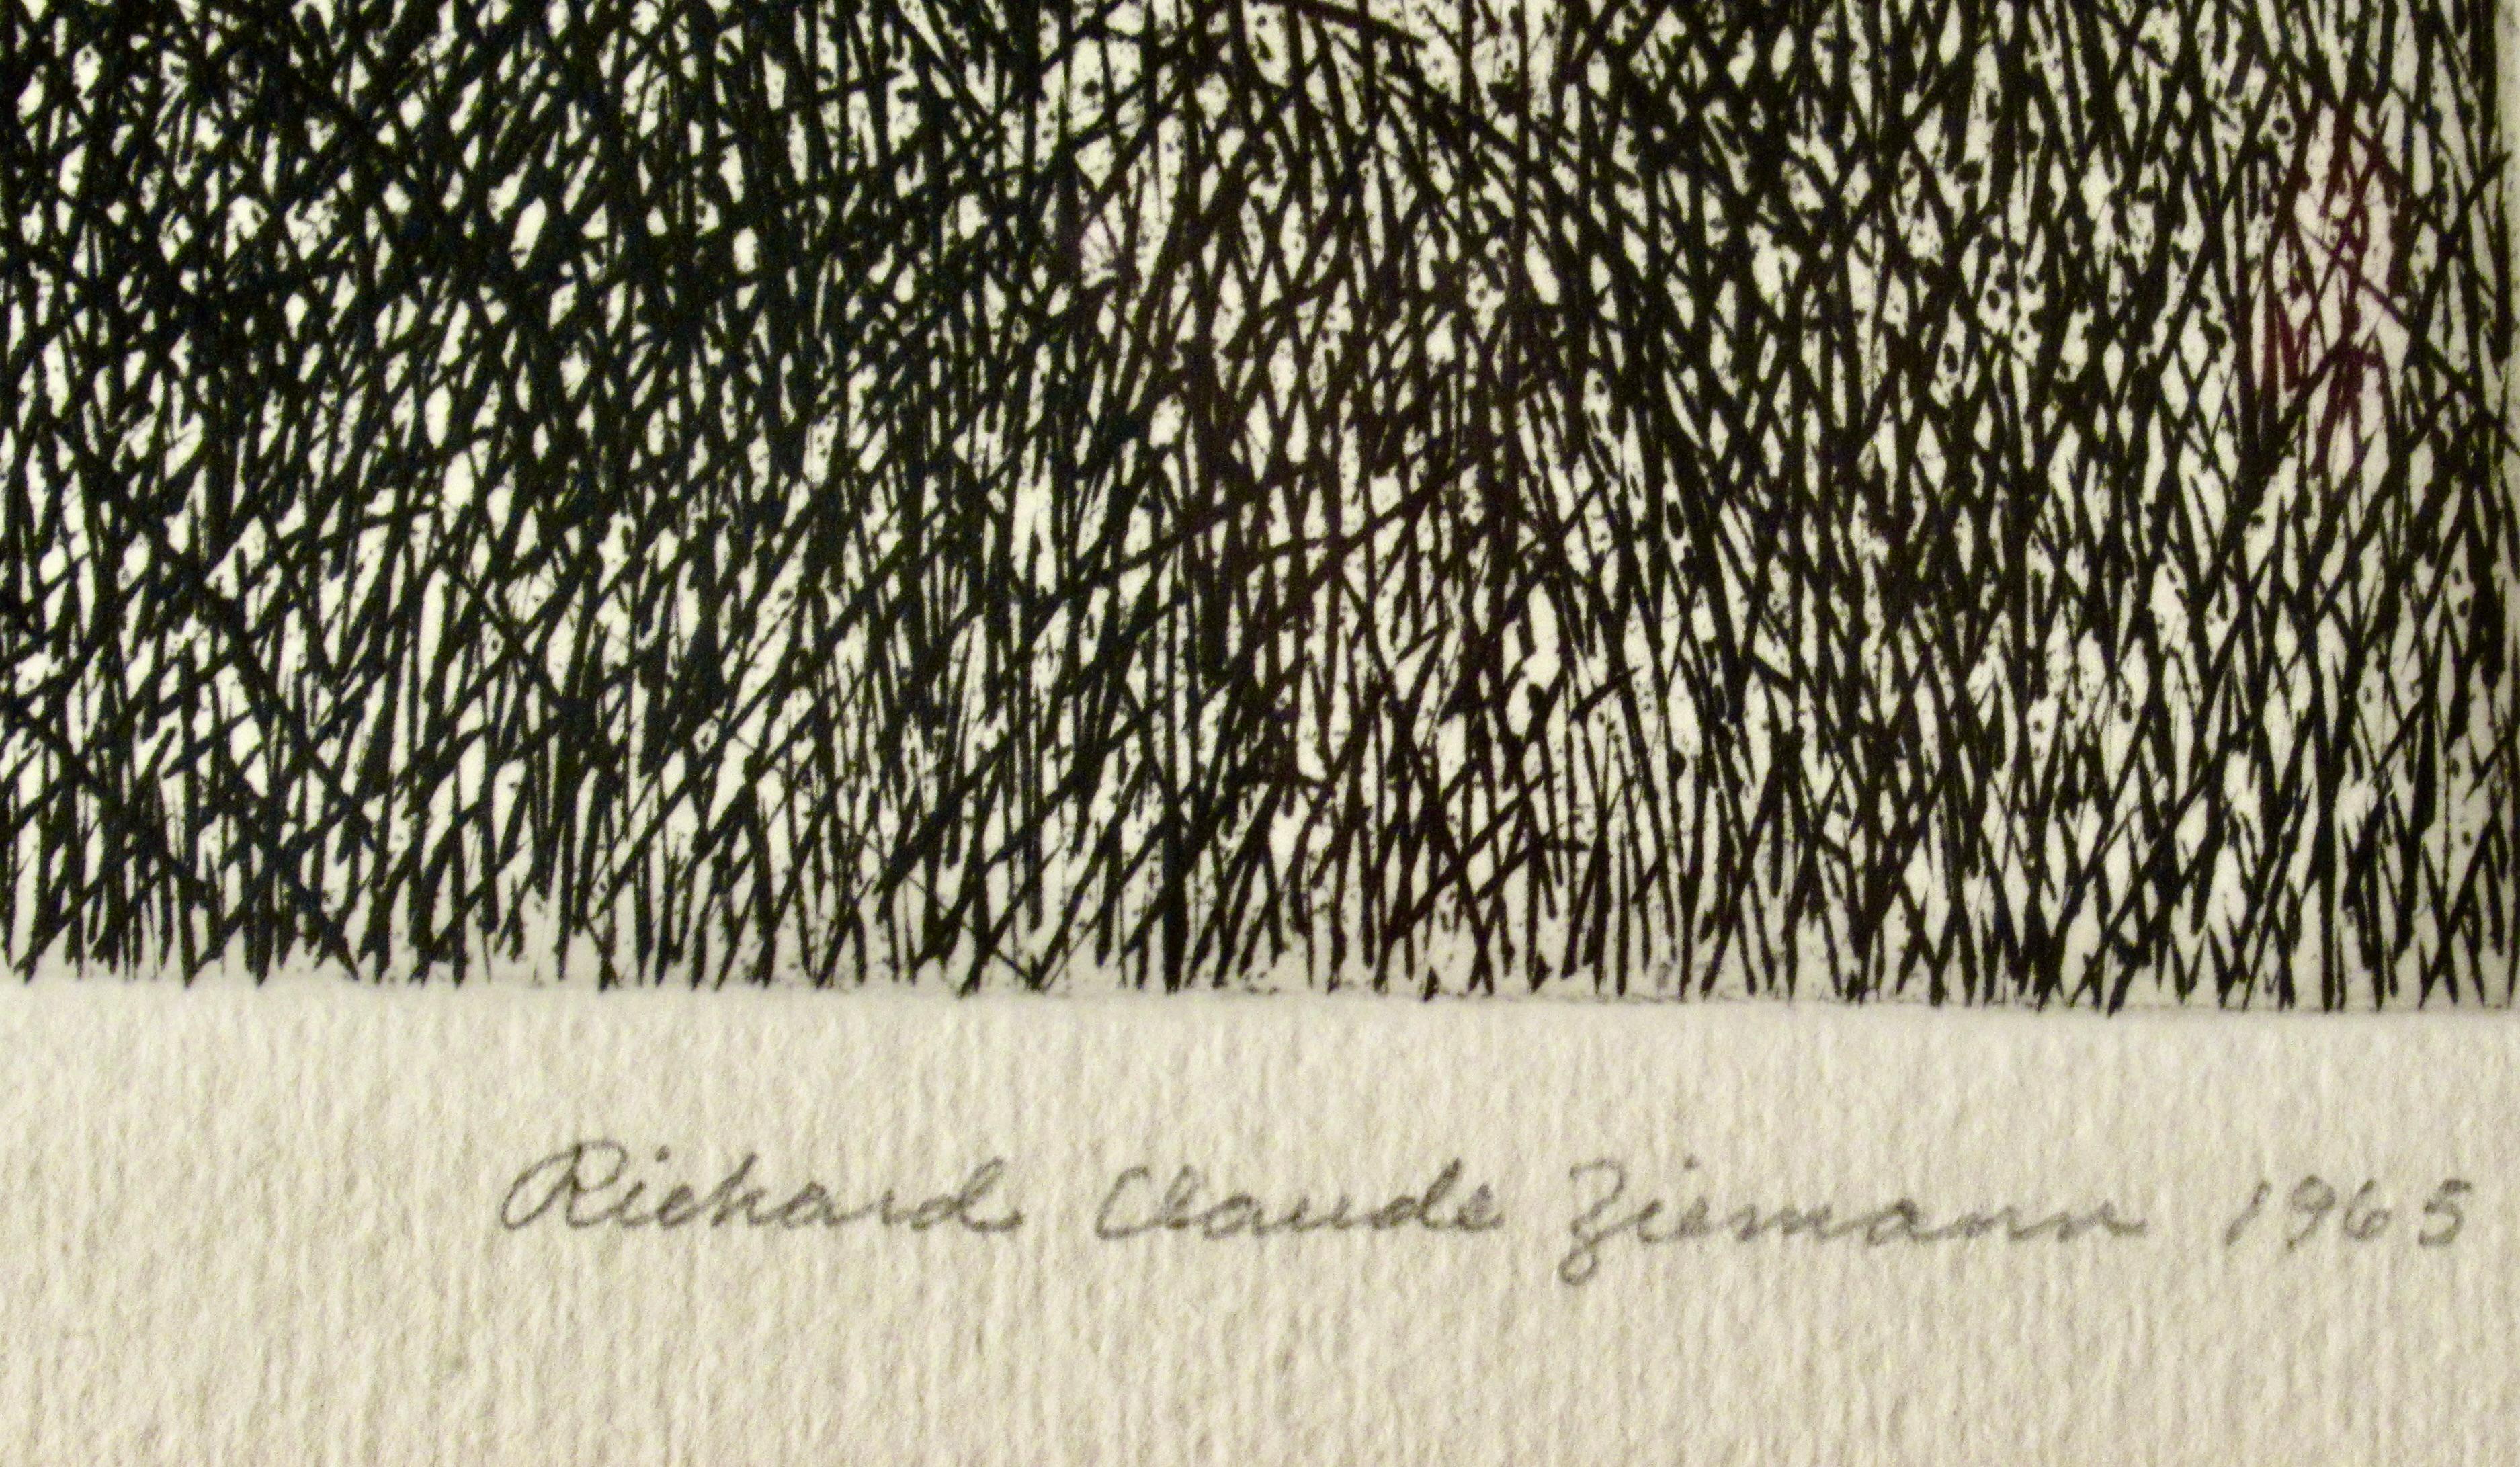 Richard Claude Ziemann 1965